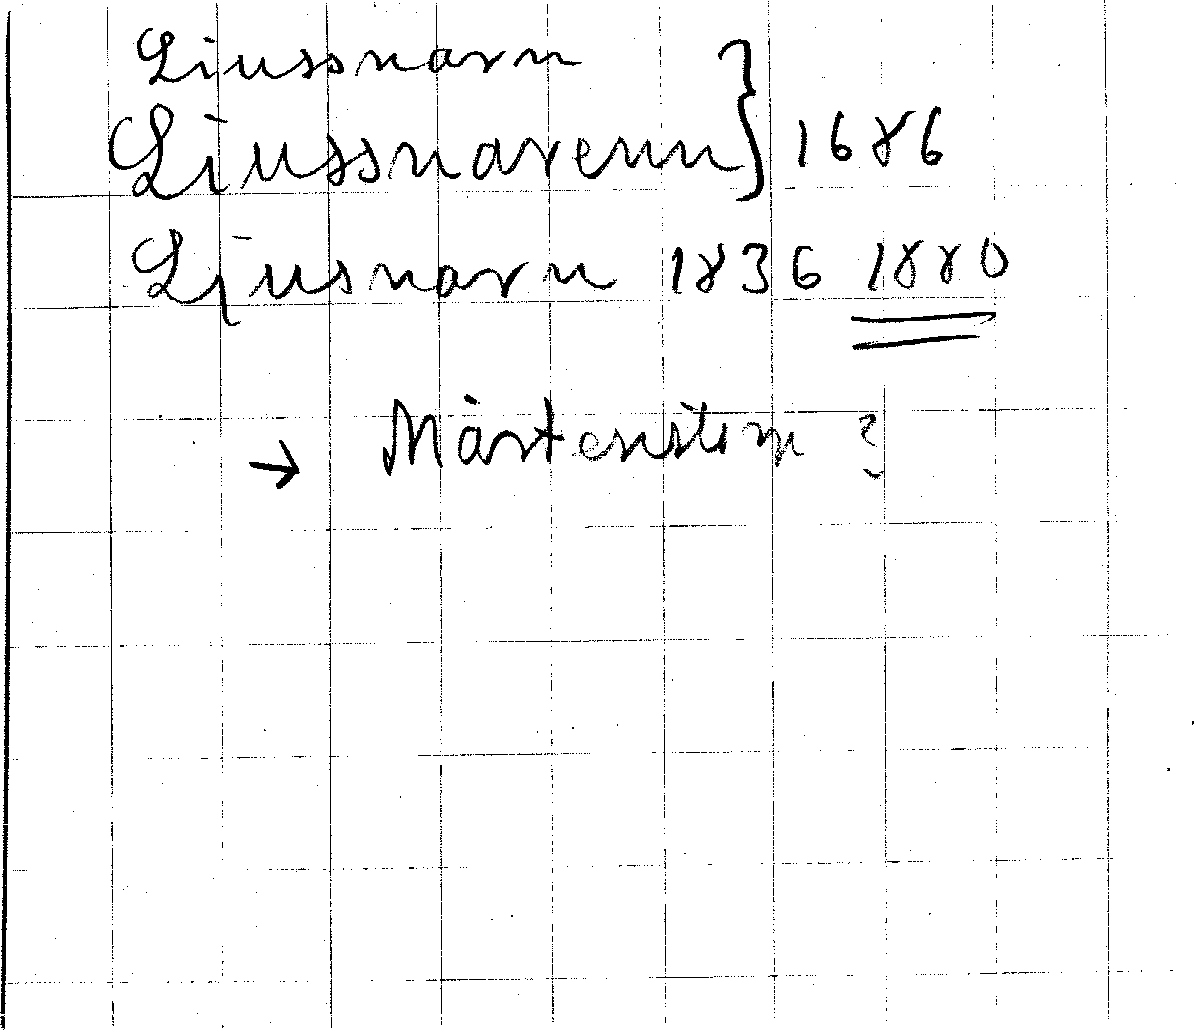 Liussnarn
Liussnarenn } 1686
Ljusnarn 1836 1880
→ Mårtenstorp ?